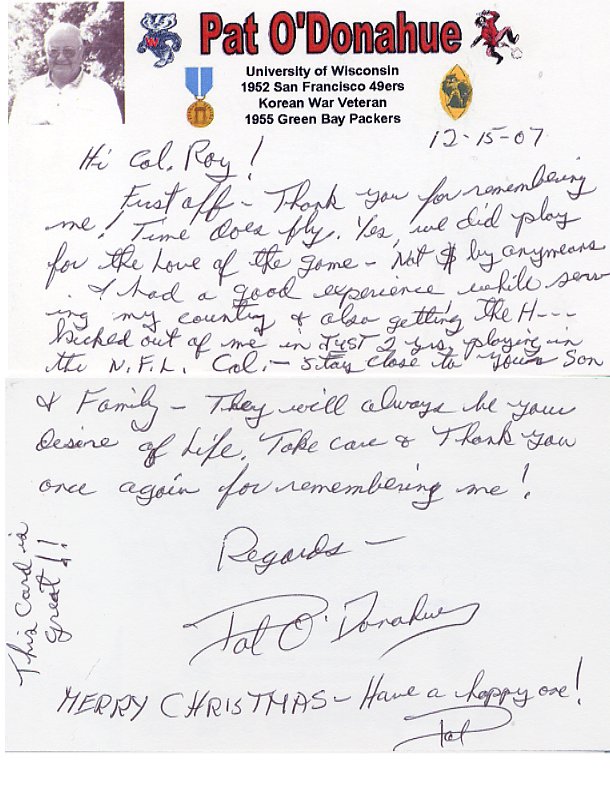 Pat O'Donahue
University of Wisconsin
1952 San Francisco 49ers
Korean War Veteran
1955 Green Bay Packers
12-15-07
Hi Col. Roy!
First off - Thank you for remembering
me! Time does fly. Yes, we did play
for the love of the game - Not $ by anymeans
. I had a good experience while serv
ing my country & also getting the H---
kicked out of me in JUST 2 yrs. playing in
the N.F.L. Col. - Stay close to your Son
& Family - They will always be your
desire of Life. Take care & Thank you
once again for remembering me!
Regards -
Pat O'Donahue
This Card is
great!!
MERRY CHRISTMAS - Have a happy one!
Pat